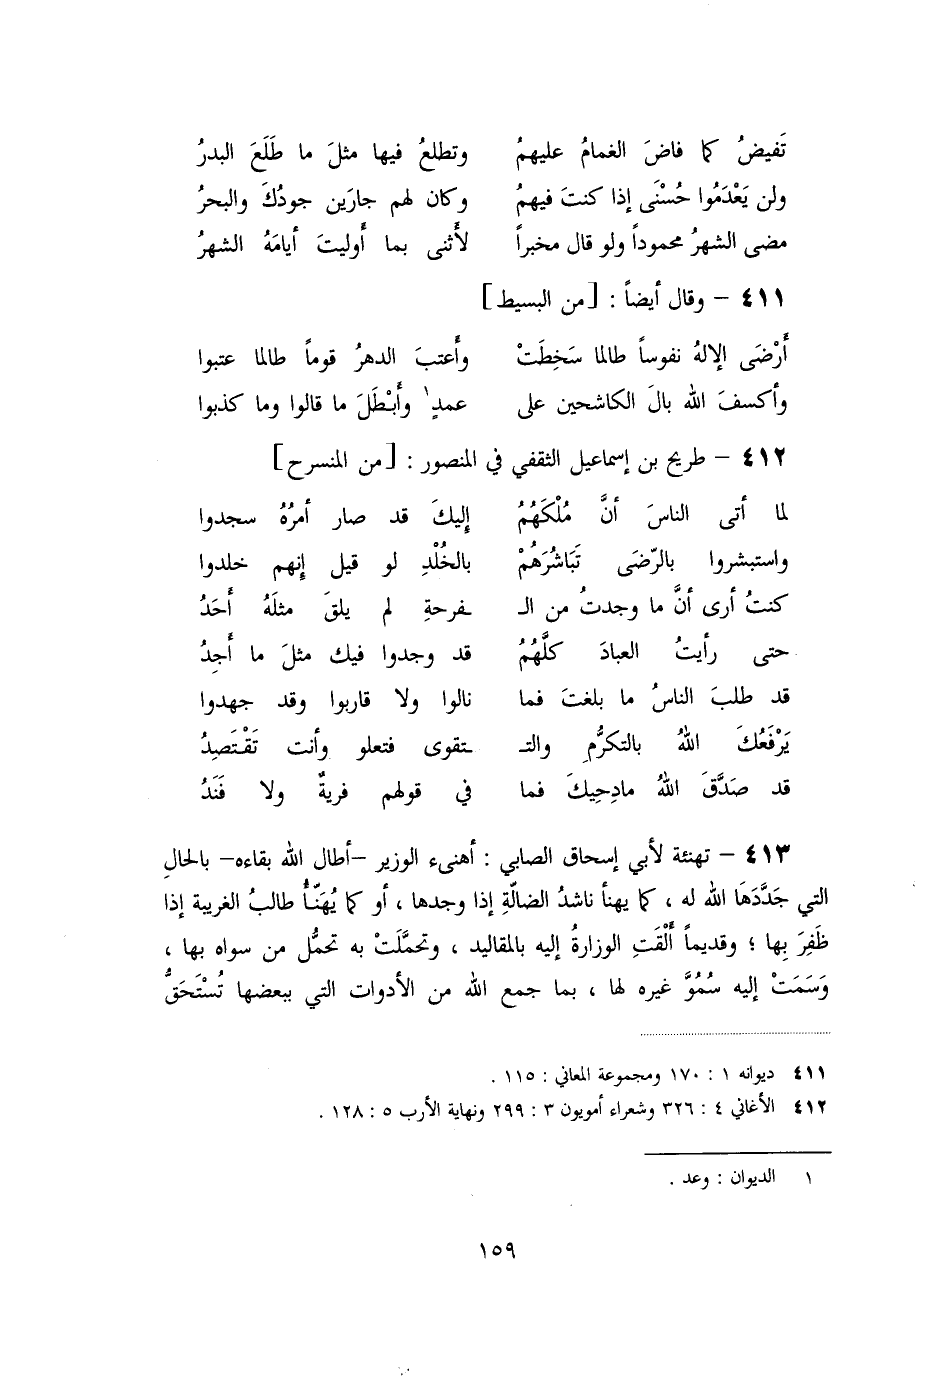 تَفيضُ كما فاضَ الغمامُ عليهمُ وتطلعُ فيها مثلَ ما طَلَعَ البدرُ
ولن يَعْدَمُوا حُسْنَى إذا كنتَ فيهمُ وكان لهم جارَين جودُكَ والبحرُ
مضى الشهرُ محموداً ولو قال مخبراً لأَثنى بما أَوليتَ أيامَهُ الشهرُ
٤١١ – وقال أيضاً : [من البسيط]
أَرْضَى الإلهُ نفوساً طالما سَخِطَتْ وأَعتبَ الدهرُ قوماً طالما عتبوا
وأكسفَ الله بالَ الكاشحين على عمدٍ١ وأَبْطَلَ ما قالوا وما كذبوا
٤١٢ – طريح بن إسماعيل الثقفي في المنصور : [من المنسرح]
لما أتى الناسَ أنَّ مُلْكَهُمُ إليكَ قد صار أمرُهُ سجدوا
واستبشروا بالرّضَى تَبَاشُرَهُمْ بالخُلْدِ لو قيل إنهم خلدوا
كنتُ أرى أنَّ ما وجدتُ من الـ ـفرحةِ لم يلقَ مثلَهُ أَحَدُ
حتى رأيتُ العبادَ كلَّهُمُ قد وجدوا فيك مثلَ ما أَجِدُ
قد طلبَ الناسُ ما بلغتَ فما نالوا ولا قاربوا وقد جهدوا
يَرْفَعُكَ اللهُ بالتكرُّمِ والتـ ـتقوى فتعلو وأنت تَقْتَصِدُ
قد صَدَّقَ اللهُ مادِحِيكَ فما في قولهم فريةٌ ولا فَنَدُ
٤١٣ – تهنئة لأبي إسحاق الصابي : أهنىء الوزير –أطال الله بقاءه– بالحالِ
التي جَدَّدَهَا الله له ، كما يهنأ ناشدُ الضالّةِ إذا وجدها ، أو كما يُهَنّأُ طالبُ الغريبة إذا
ظَفِرَ بِها ؛ وقديماً أَلْقَتِ الوزارةُ إليه بالمقاليد ، وتحمَّلَتْ به تحمُّل من سواه بها ،
وَسَمَتْ إليه سُمُوَّ غيره لها ، بما جمع الله من الأدوات التي ببعضها تُسْتَحَقُّ
٤١١ ديوانه ١ : ١٧٠ ومجموعة المعاني : ١١٥ .
٤١٢ الأغاني ٤ : ٣٢٦ وشعراء أمويون ٣ : ٢٩٩ ونهاية الأرب ٥ : ١٢٨ .
١ الديوان : وعد .
١٥٩